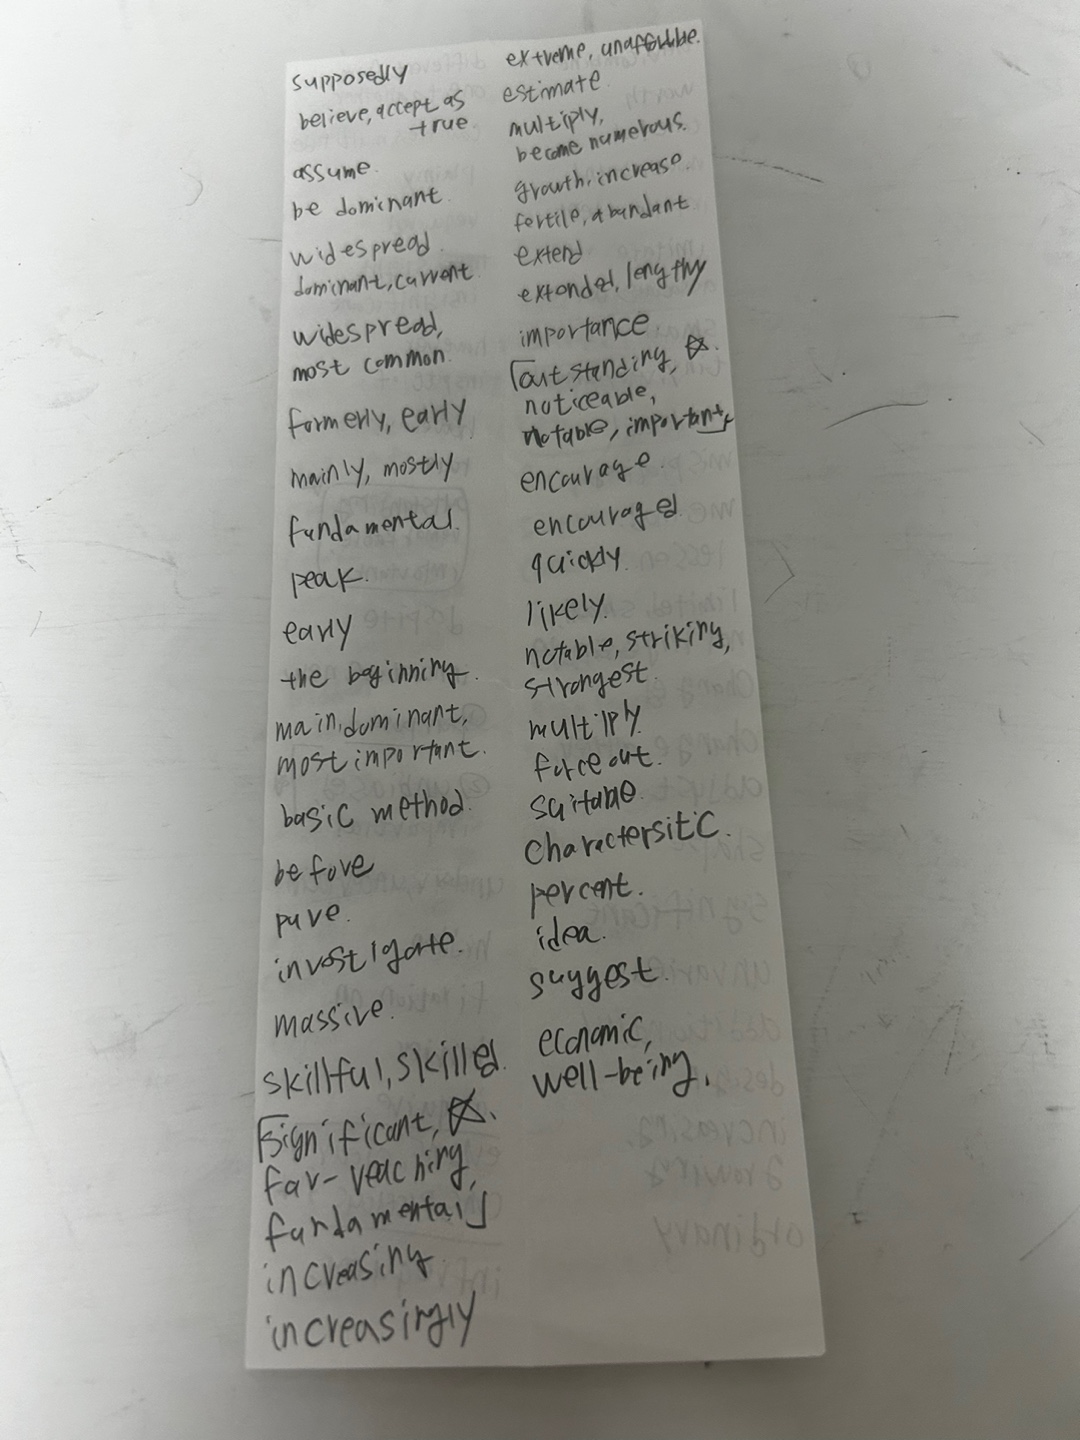 supposedly
believe, accept as
true.
assume.
be dominant.
widespread.
dominant, current.
widespread,
most common.
formerly, early
mainly, mostly
fundamental.
peak.
early
the beginning.
main, dominant,
most important.
basic method.
before
pure.
investigate.
massive.
skillful, skilled.
「significant, ☆.
far-reaching,
fundamental」
increasing
increasingly
extreme,
estimate
multiply,
become numerous.
growth, increase.
fertile, abundant
extend
extended, lengthy
importance
「outstanding, ☆.
noticeable,
notable, important」
encourage.
encouraged.
quickly.
likely.
notable, striking,
strongest.
multiply.
force out.
suitable.
charactersitc.
percent.
idea.
suggest.
economic,
well-being.